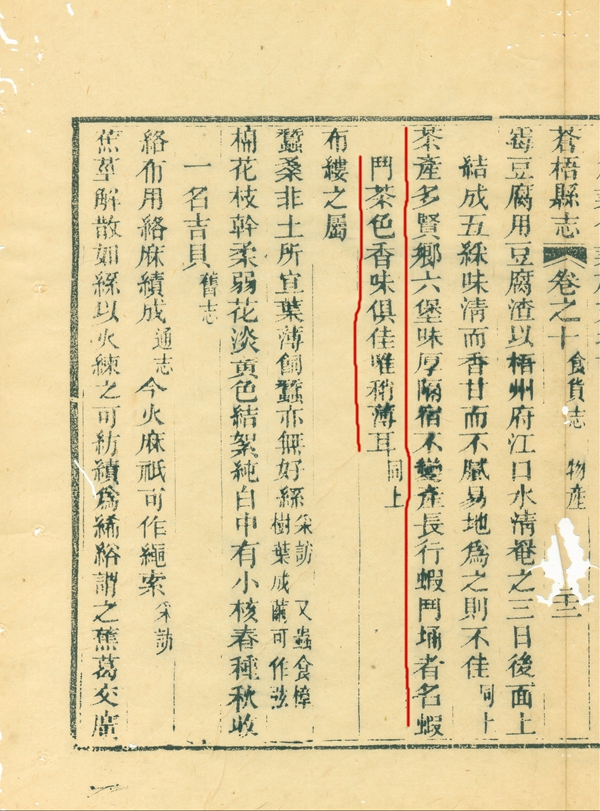 蒼梧縣志 卷之十 食貨志 物產 二十二
霉豆腐用豆腐渣以梧州府江口水清罨之三日後面上
結成五綵味清而香甘而不膩易地為之則不佳同上
茶產多賢鄉六堡味厚隔宿不變產長行蝦鬥埇者名蝦
鬥茶色香味俱佳唯稍薄耳同上
布縷之屬
蠶桑非土所宜葉薄飼蠶亦無好絲采訪 又蟲食樟樹葉成繭可作弦
棉花枝幹柔弱花淡黃色結絮純白中有小核春種秋收
一名吉貝舊志
絡布用絡麻績成通志今火麻祇可作繩索采訪
蕉莖解散如絲以火練之可紡績為絺綌謂之蕉葛交廣